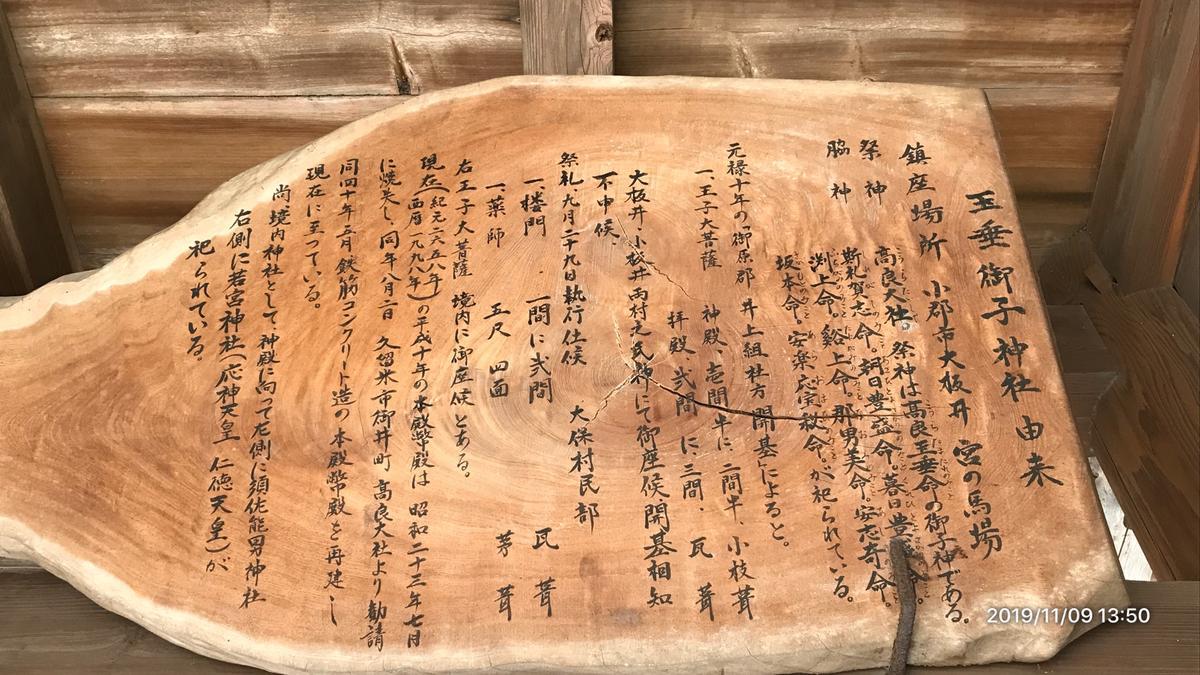 玉垂御子神社 由来
鎮座場所 小郡市大板井 宮の馬場
祭神 高良大社。祭神は高良玉垂命の御子神である。
脇神 斯礼賀志命。朝日豊盛命。暮日豊 命。
渕上命。谿上命。那男美命。安志奇命。
坂本命。安楽応宝秘命。が祀られている。
元禄十年の「御原郡 井上組社方 開基」によると。
一、王子大菩薩 神殿、壱間半に 二間半、小枝葺
拝殿、弐間 に三間、 瓦葺
大板井、小板井両村之氏神にて御座候、開基相知
不申候、
祭礼、九月二十九日執行仕候 大保村民部
一、楼門 一間に弐間 瓦葺
一、薬師 五尺 四面 茅葺
右王子大菩薩 境内に御座候とある。
現在(紀元二六五八年)(西暦一九九八年)の平成十年の本殿幣殿は 昭和二十三年七月
に焼失し、同年八月二日 久留米市御井町 高良大社より勧請
同四十年三月鉄筋コンクリート造の 本殿幣殿を再建し
現在に至っている。
尚、境内神社として、神殿に向って左側に須佐能男神社
右側に若宮神社(応神天皇、仁徳天皇)が
祀られている。
2019/11/09 13:50